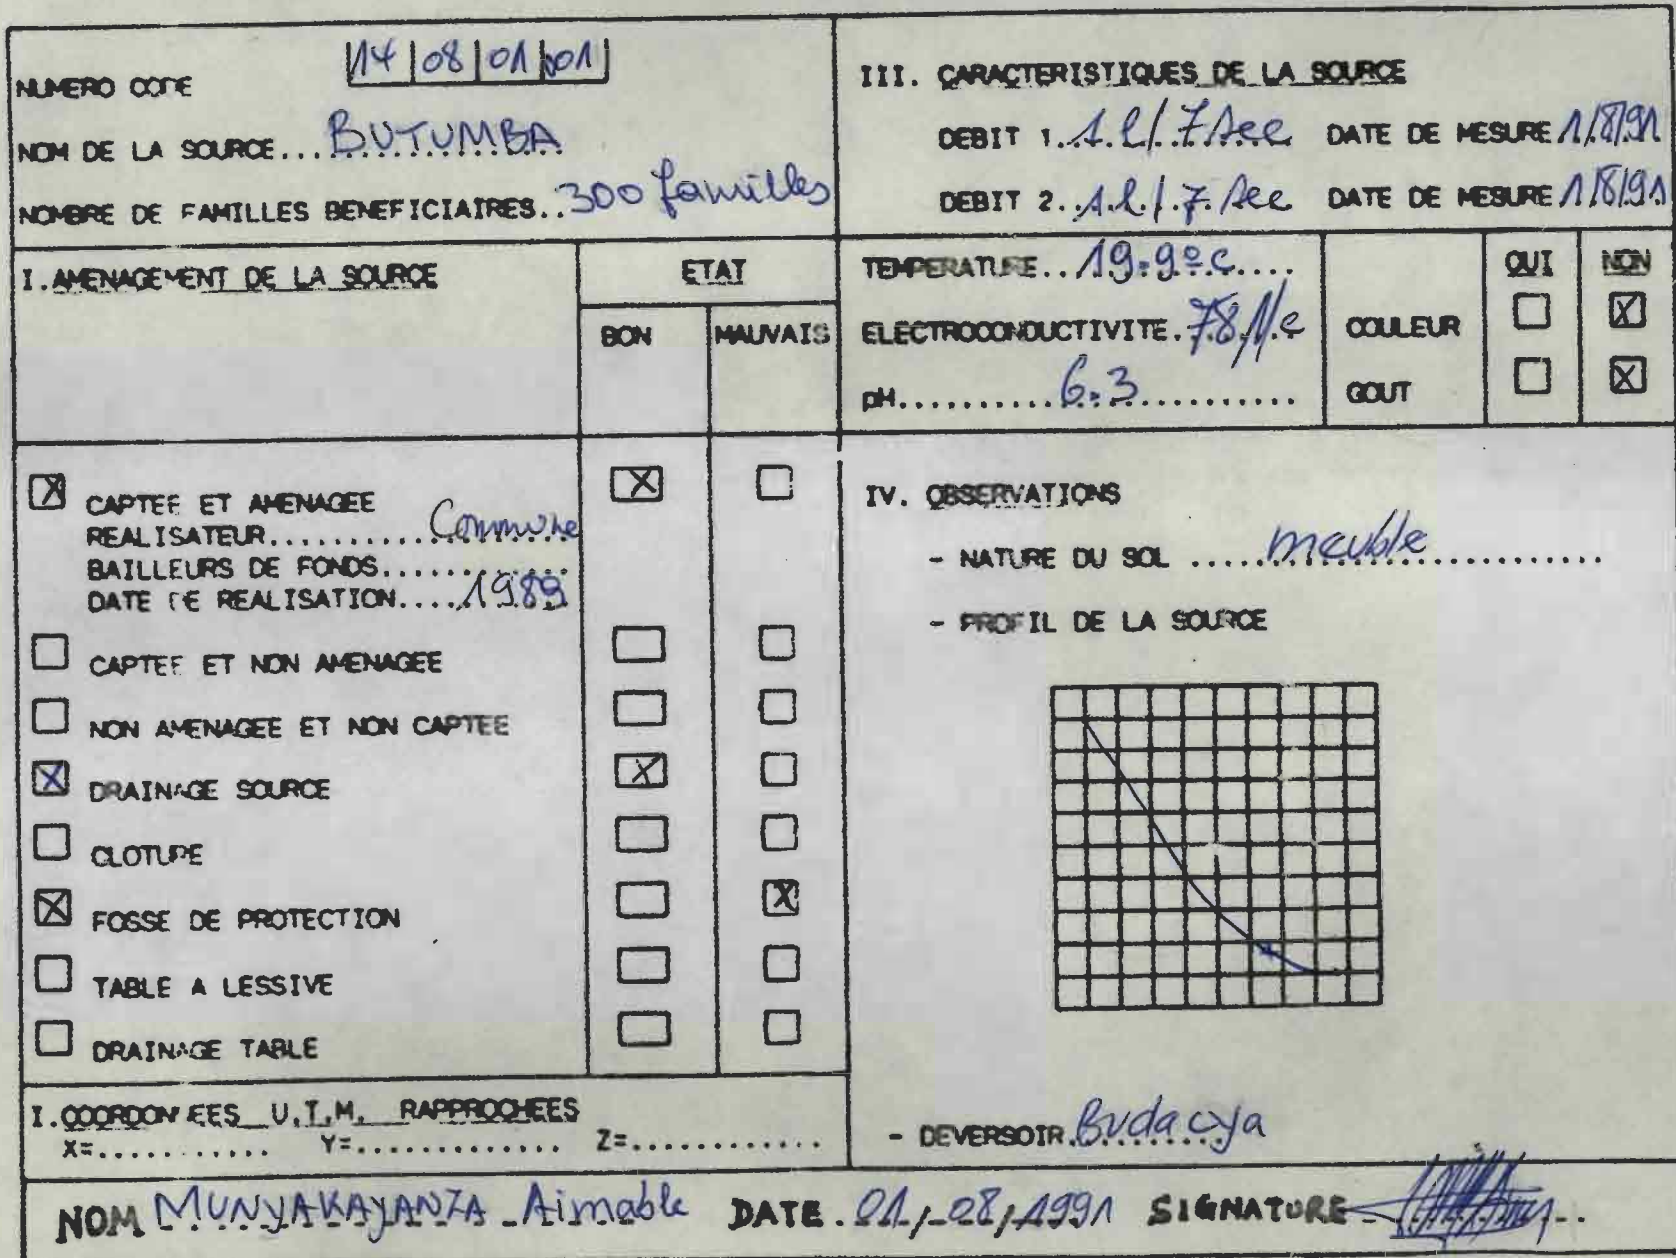 NUMERO CODE |14|08|01|001|
NOM DE LA SOURCE... BUTUMBA
NOMBRE DE FAMILLES BENEFICIAIRES.. 300 familles
III. CARACTERISTIQUES DE LA SOURCE
DEBIT 1. 1.l/.7.sec DATE DE MESURE 1/8/91
DEBIT 2. 1.l/.7.sec DATE DE MESURE 1/8/91
I.AMENAGEMENT DE LA SOURCE
ETAT
BON MAUVAIS
TEMPERATURE.. 19.9°C....
ELECTROCONDUCTIVITE. 78
pH.......... 6.3............
OUI NON
COULEUR ☐ ☒
GOUT ☐ ☒
☒ CAPTEE ET AMENAGEE ☒ ☐
REALISATEUR.......... Commune
BAILLEURS DE FONDS............
DATE DE REALISATION.... 1989
☐ CAPTEE ET NON AMENAGEE ☐ ☐
☐ NON AMENAGEE ET NON CAPTEE ☐ ☐
☒ DRAINAGE SOURCE ☒ ☐
☐ CLOTURE ☐ ☐
☒ FOSSE DE PROTECTION ☐ ☒
☐ TABLE A LESSIVE ☐ ☐
☐ DRAINAGE TABLE ☐ ☐
I.COORDONNEES U.T.M. RAPPROCHEES
X=............ Y=............. Z=............
IV. OBSERVATIONS
- NATURE DU SOL ..... meuble............
- PROFIL DE LA SOURCE
- DEVERSOIR. Budacya
NOM MUNYAKAYANZA Aimable DATE. 01/-08/1991 SIGNATURE